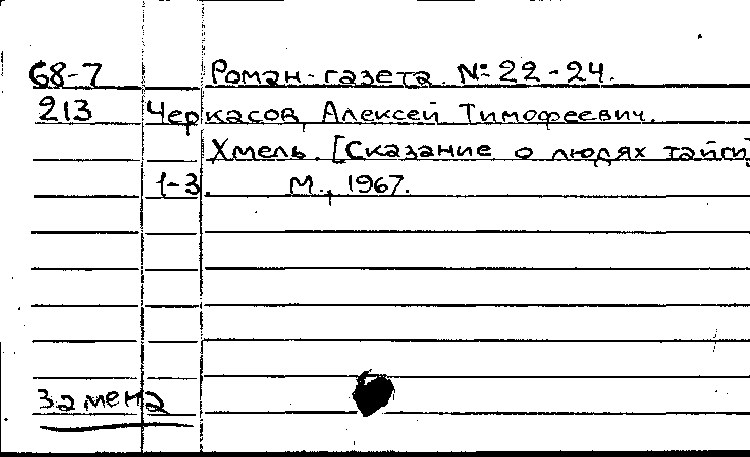 68-7 Роман-газета. №22-24.
213 Черкасов, Алексей Тимофеевич.
Хмель. [Сказание о людях тайги]
1-3. М., 1967.
Замена